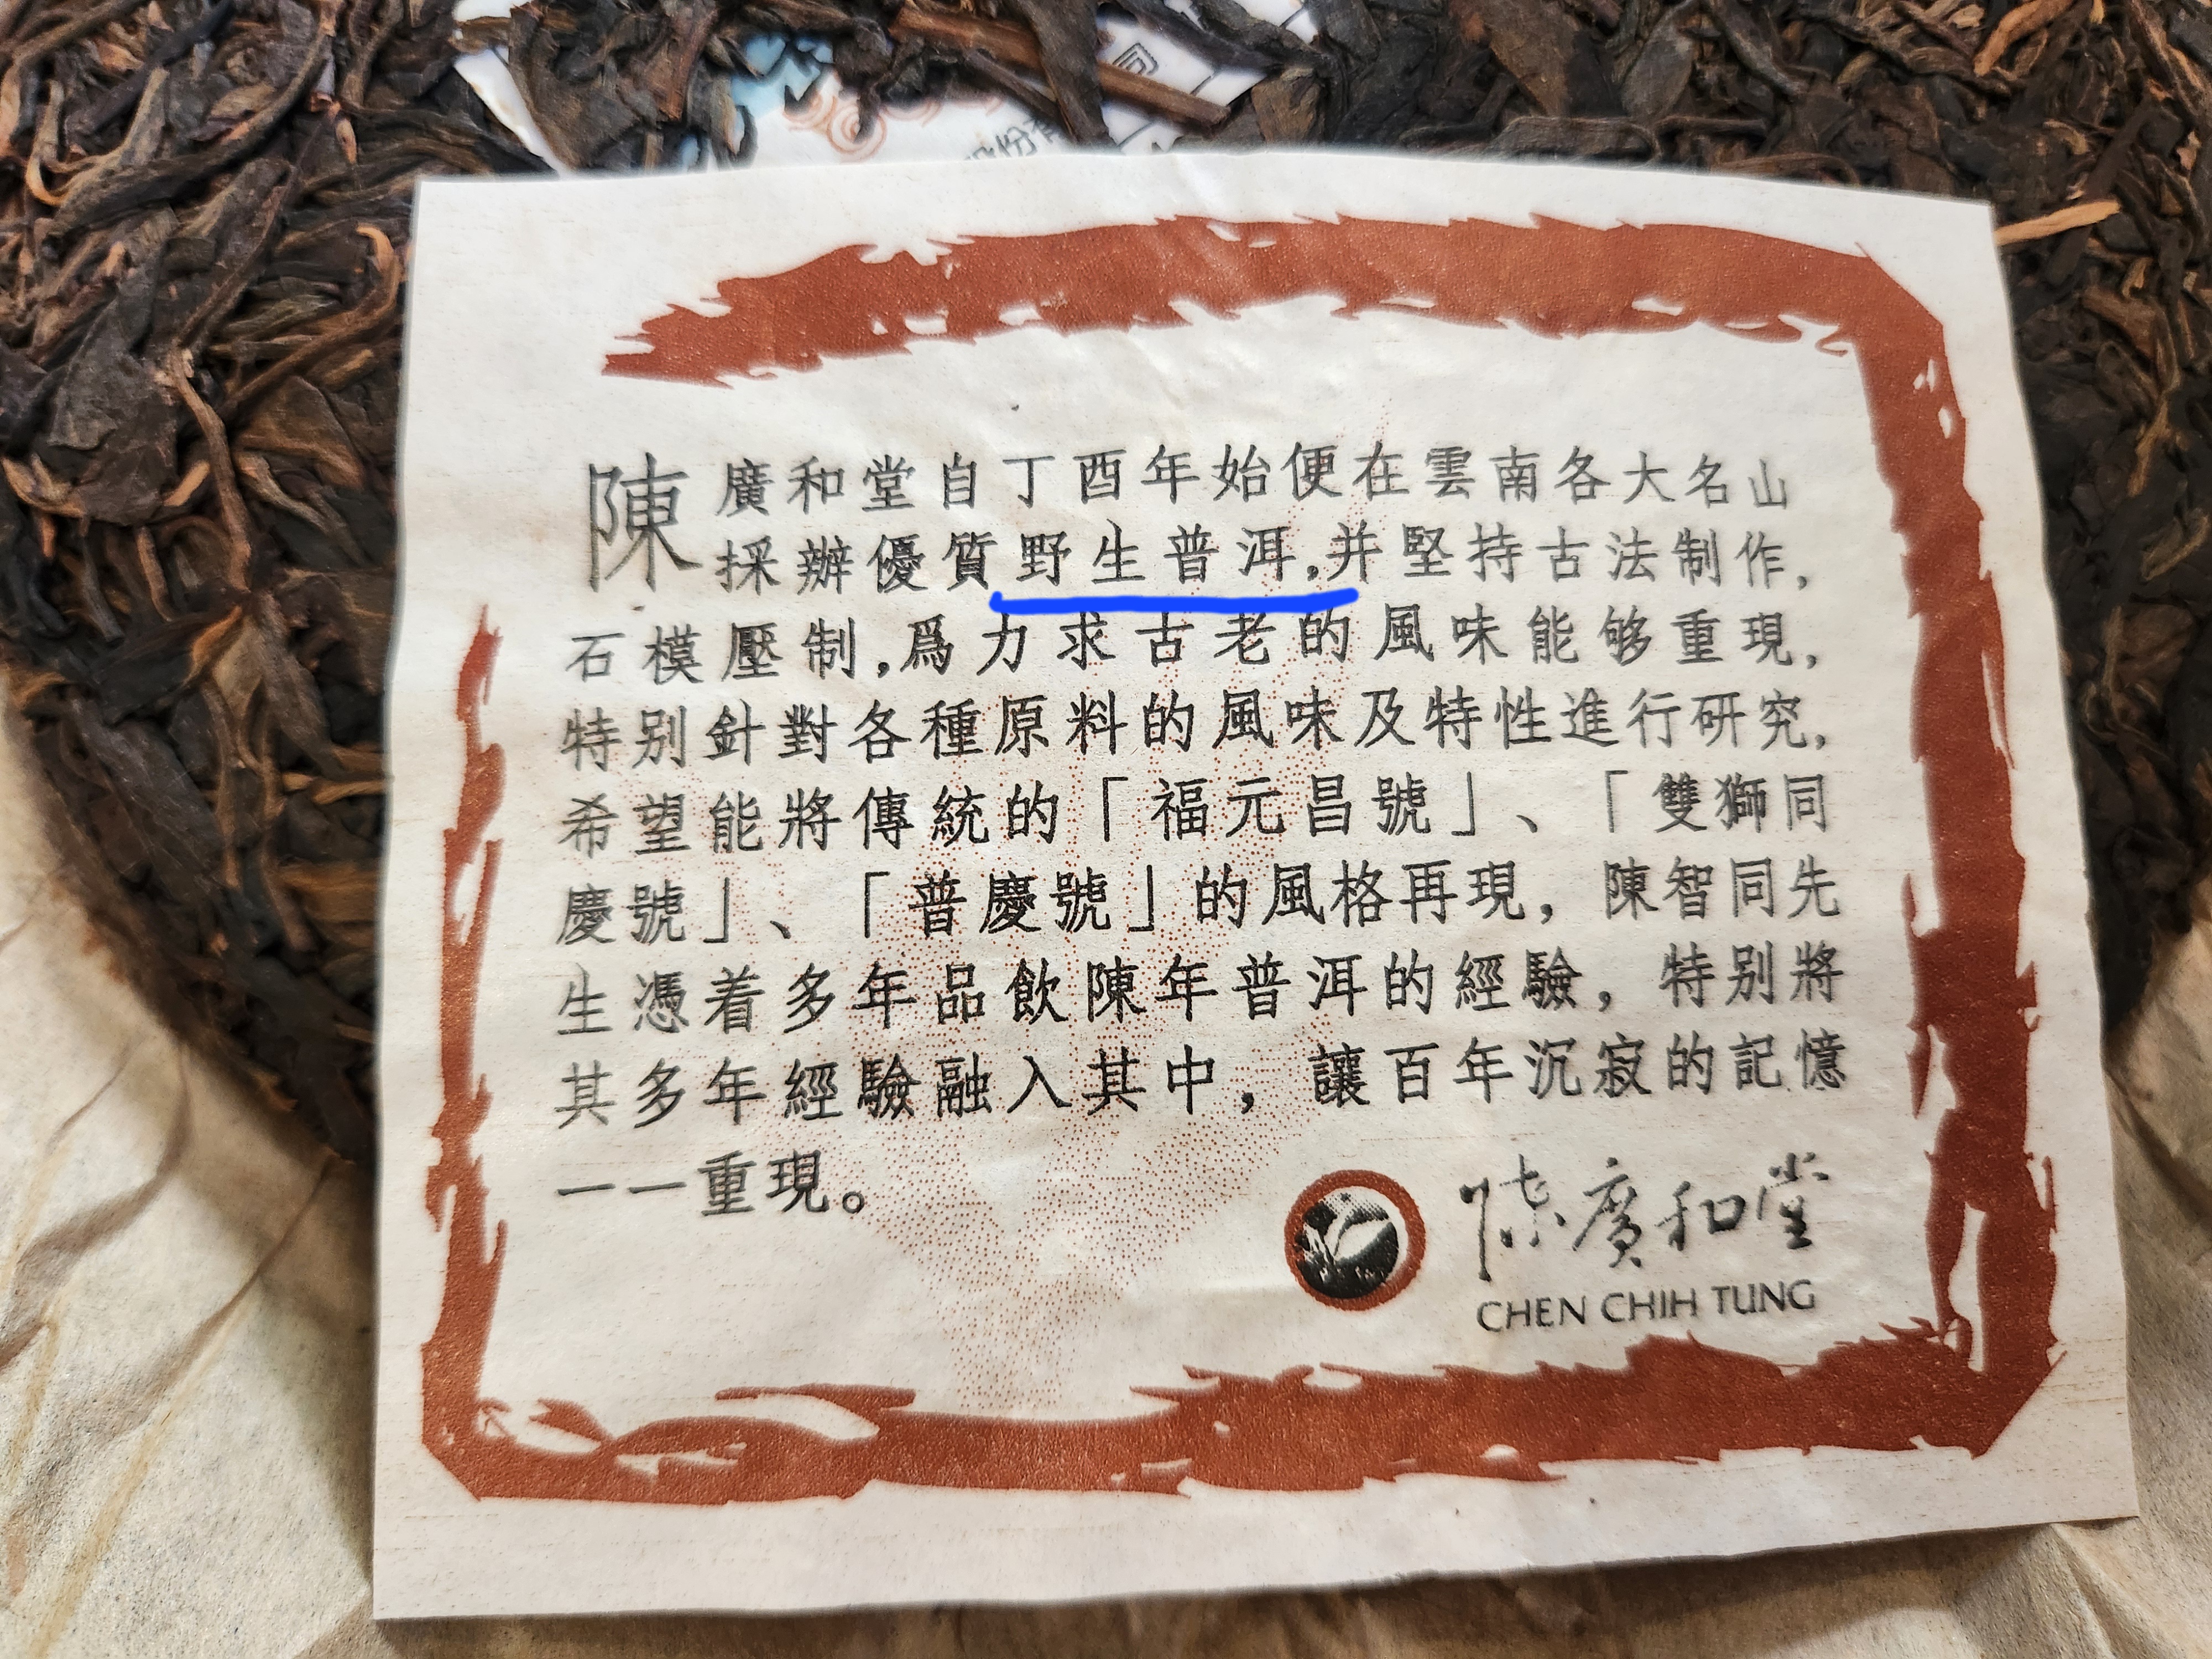 司
份有
陳廣和堂自丁酉年始便在雲南各大名山
採辦優質野生普洱,并堅持古法制作,
石模壓制,爲力求古老的風味能够重現,
特别針對各種原料的風味及特性進行研究,
希望能將傳統的「福元昌號」、「雙獅同
慶號」、「普慶號」的風格再現，陳智同先
生憑着多年品飲陳年普洱的經驗，特别將
其多年經驗融入其中，讓百年沉寂的記憶
一一重現。
陳廣和堂
CHEN CHIH TUNG